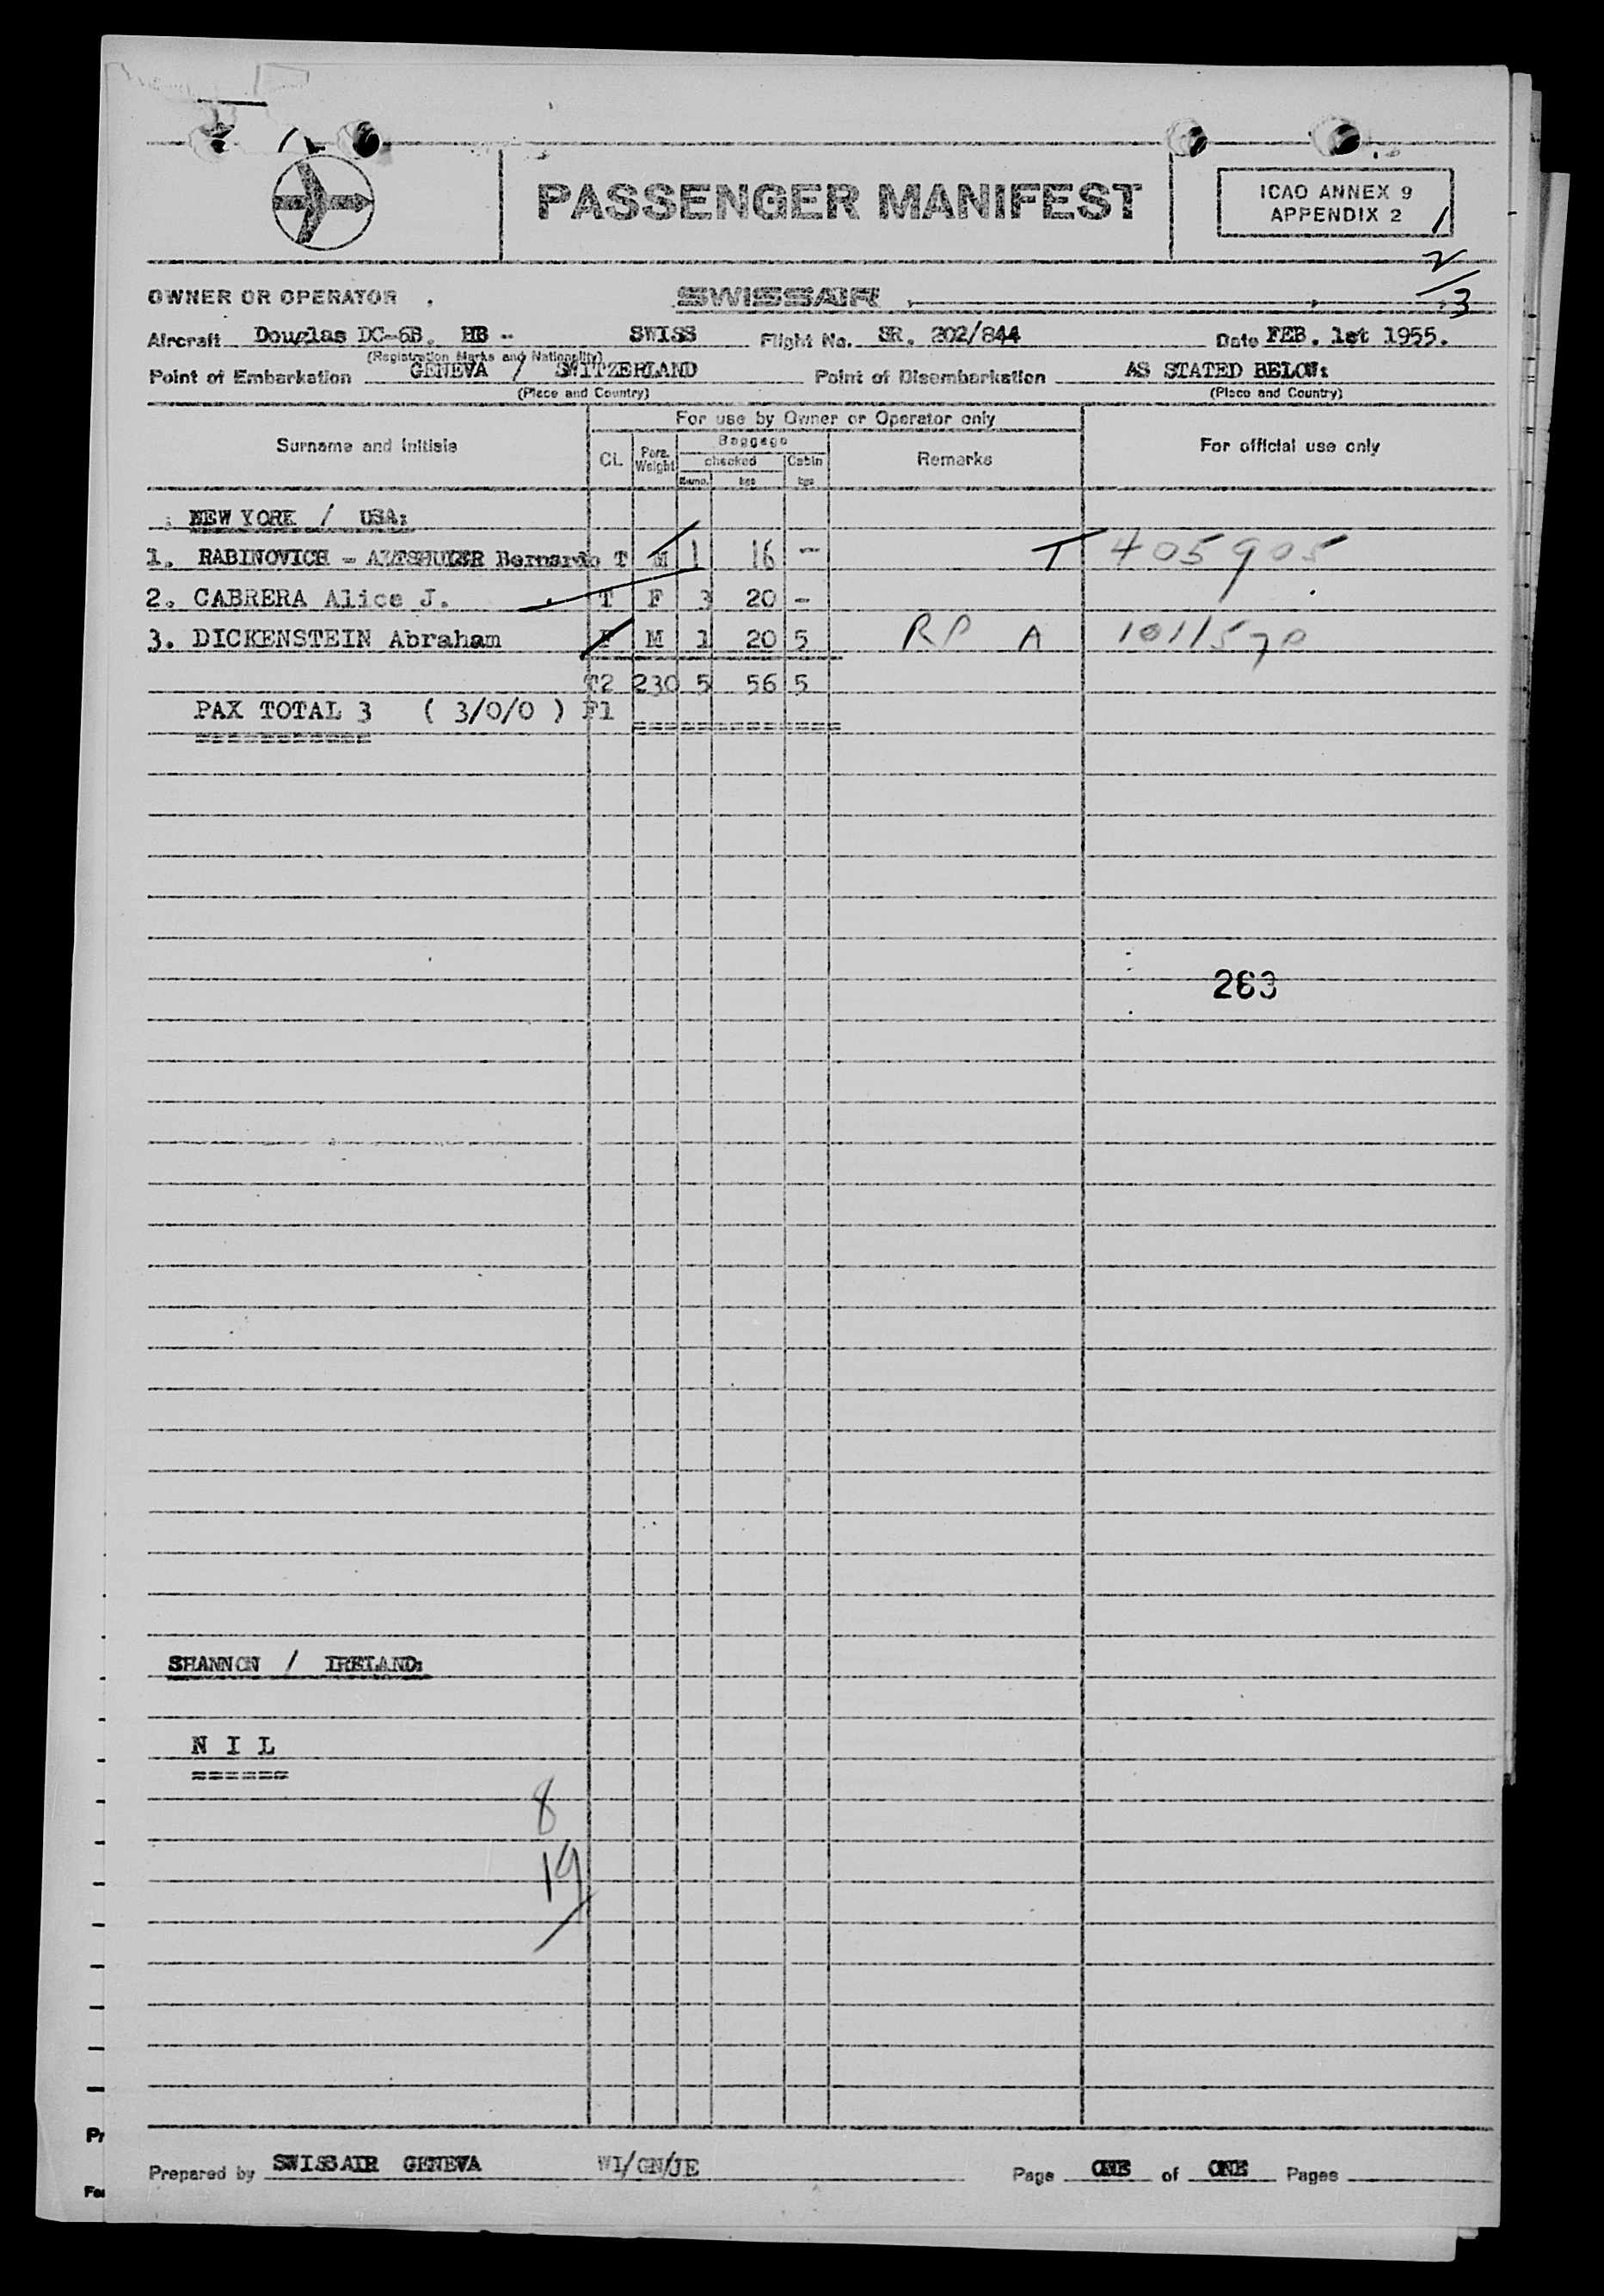 PASSENGER MANIFEST
ICAO ANNEX 9
APPENDIX 2
1
2/3
OWNER OR OPERATOR SWISSAIR
Aircraft Douglas DC-6B. HB - SWISS Flight No. SR. 202/844 Date FEB. 1st 1955.
(Registration Marks and Nationality)
Point of Embarkation GENEVA / SWITZERLAND Point of Disembarkation AS STATED BELOW:
(Place and Country) (Place and Country)
For use by Owner or Operator only
Surname and initials Cl. Pers. Weight Baggage checked kgs Cabin kgs Remarks For official use only
NEW YORK / USA:
1. RABINOVICH - ALTSHULER Bernardo T M 1 16 - T 405905
2. CABRERA Alice J. T F 3 20 -
3. DICKENSTEIN Abraham F M 1 20 5 RP A 1011570
T2 230 5 56 5
PAX TOTAL 3 ( 3/0/0 ) F1
===========
263
SHANNON / IRELAND:
N I L
======
8
19
Prepared by SWISSAIR GENEVA WI/GN/JE Page ONE of ONE Pages
Pr